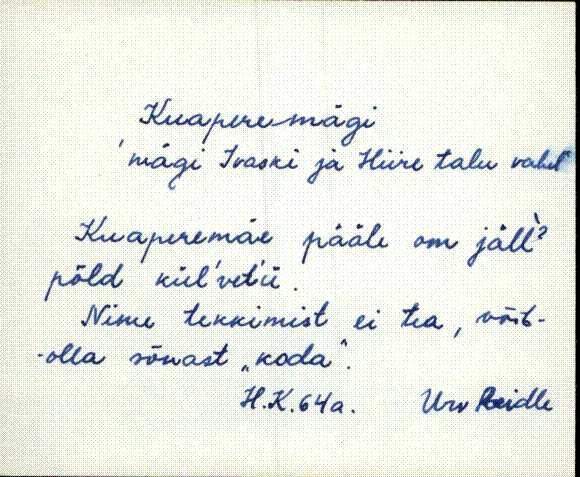 Kuaperemägi
'mägi Ivaski ja Hiire talu vahel'
Kuaperemäe pääle om jäll?
põld kül'vet'ü.
Nime tekkimist ei tea, võib-
-olla sõnast „koda".
H.K. 64a. Urv